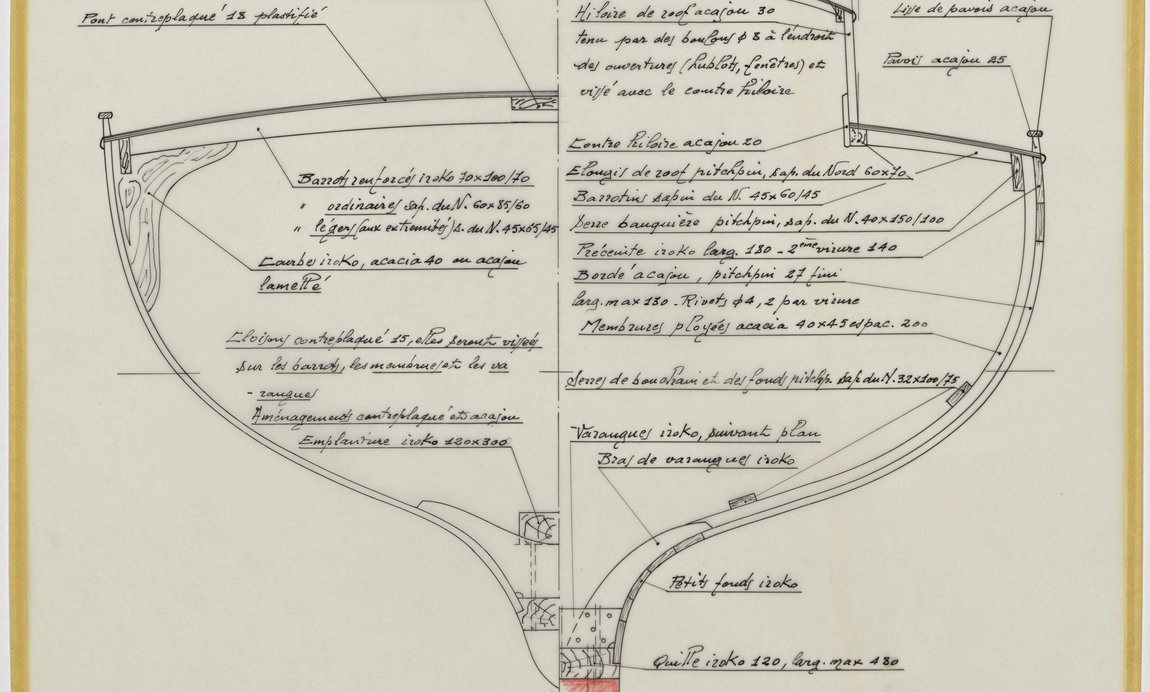 Pont contreplaqué 18 plastifié
Barrots renforcés iroko 70x100/70
" ordinaires sap. du N. 60x85/60
" légers (aux extremités) s. du N. 45x65/45
Courbes iroko, acacia 40 ou acajou
lamellé
Cloisons contreplaqué 15, elles seront vissées
sur les barrots, les membrures et les va
- rangues
Aménagements contreplaqué et acajou
Emplanture iroko 120x300
Hiloire de roof acajou 30
tenu par des boulons φ 8 à l'endroit
des ouvertures (hublots, fenêtres) et
vissé avec le contre hiloire
Lisse de pavois acajou
Pavois acajou 25
Contre hiloire acajou 20
Elongis de roof pitchpin, sap. du Nord 60x70
Barrotins sapin du N. 45x60/45
Serre bauquière pitchpin, sap. du N. 40x150/100
Préceinte iroko larg. 180 - 2ème virure 140
Bordé acajou, pitchpin 27 fini
larg. max 130 - Rivets φ 4, 2 par virure
Membrures ployées acacia 40x45 espac. 200
Serres de bouchain et des fonds pitchp. sap. du N. 32x100/75
Varangues iroko, suivant plan
Bras de varangues iroko
Petits fonds iroko
Quille iroko 120, larg. max 480